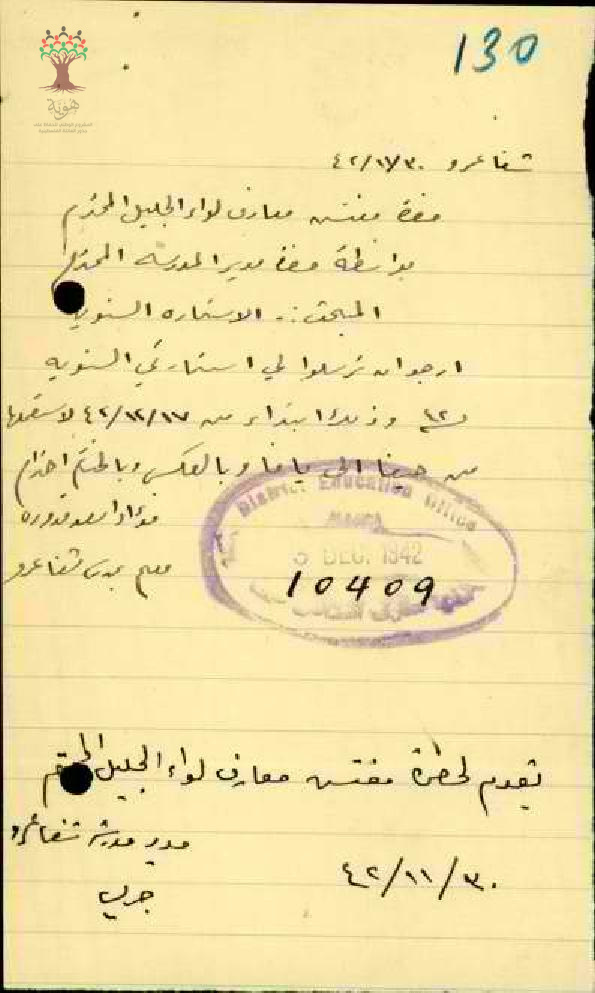 130
هوية
شفاعمرو ٤٢/١١/٣٠
حضرة مفتش معارف لواء الجليل المحترم
بواسطة حضرة مدير المدرسه المحترم
المبحث :. الاستماره السنويه
ارجو ان ترسلوا لي استمارتي السنويه
وذلك ابتداء من ٤٢/١٢/١٧
من حيفا الى يافا وبالعكس وبالختام احترام
فؤاد
معلم شفاعمرو
District Education Office
5 DEC. 1942
10409
يقدم لحضرة مفتش معارف لواء الجليل المحترم
مدير مدرسة شفاعمرو
٤٢/١١/٣٠